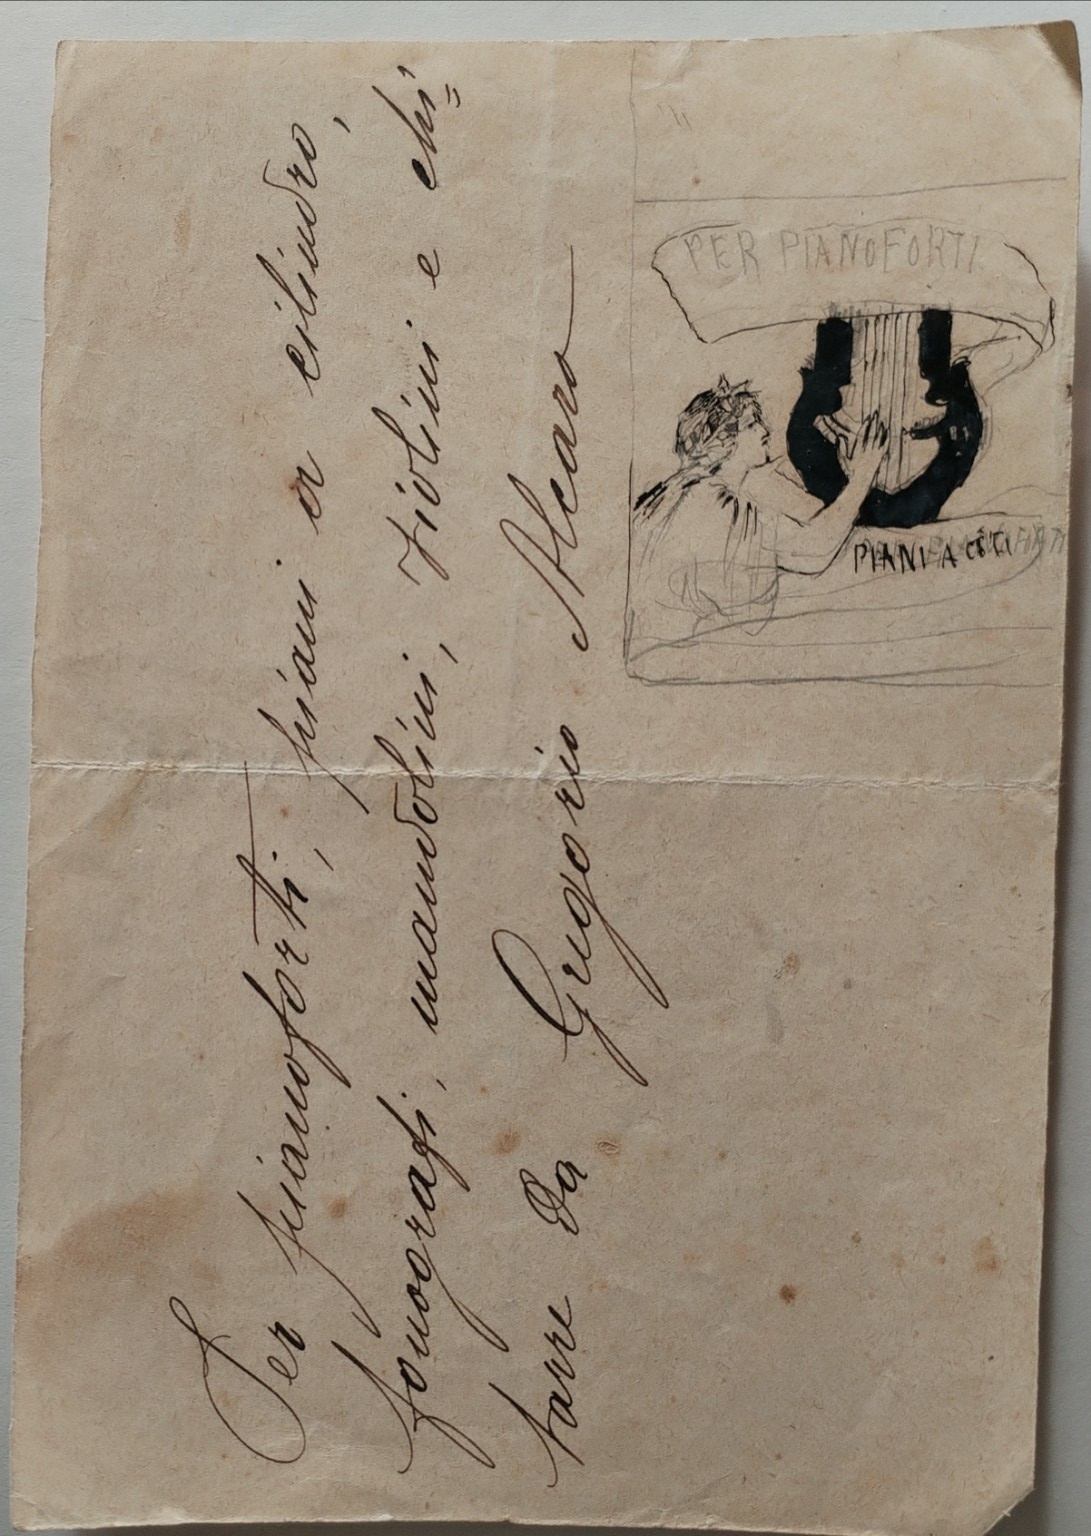 Per pianoforti, piani a cilindro,
fonografi, mandolini, violini e chi=
tarre da Gregorio Alcaro
PER PIANOFORTI
PIANI A